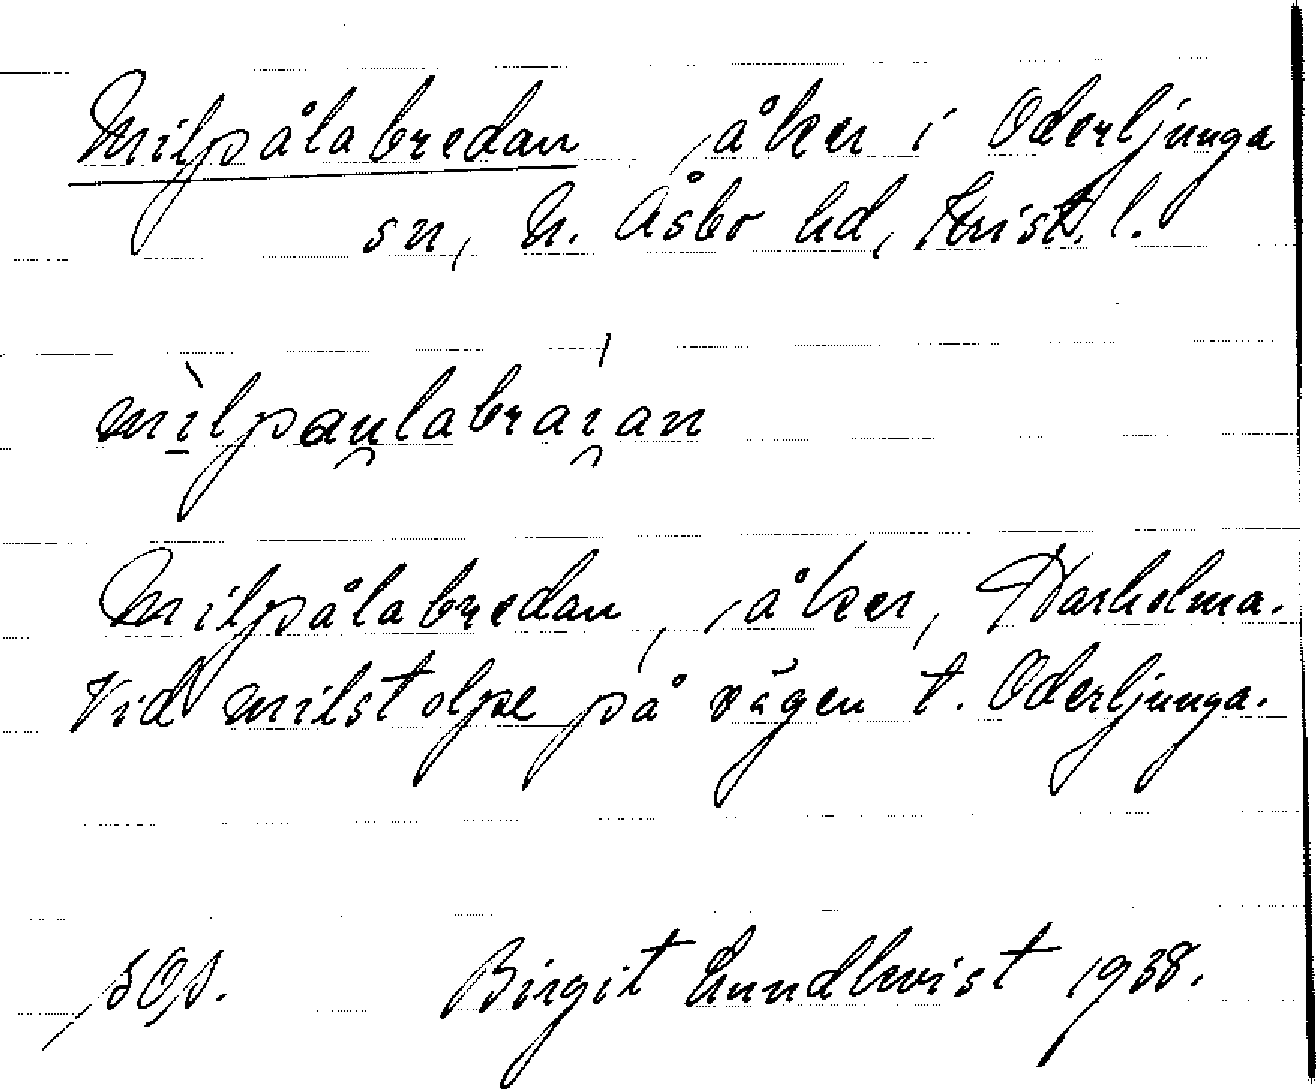 Milpålabredan, åker i Oderljunga
sn, N. Åsbo hd, Krist. l.
mìlpau̯labrai̯an
Milpålabredan, åker, Harholma.
Vid milstolpe på vägen t. Oderljunga.
Birgit Lundkvist 1938.